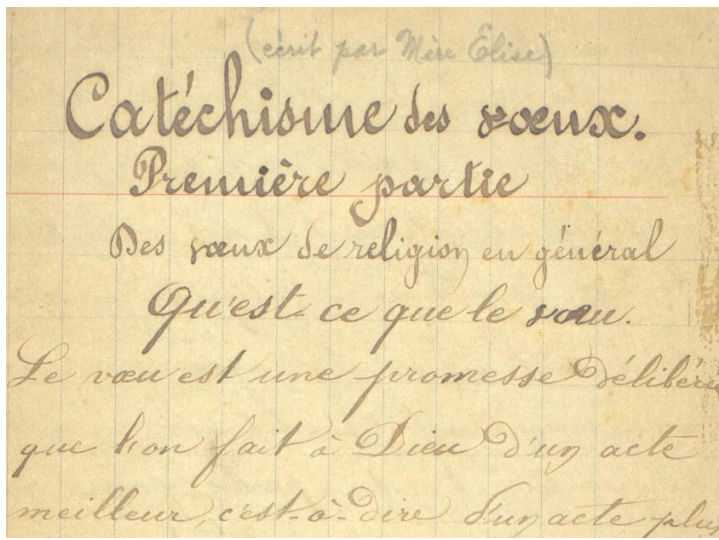 (écrit par Mère Élise)
Catéchisme des vœux.
Première partie
Des vœux de religion en général
Qu'est-ce que le vœu.
Le vœu est une promesse délibérée
que l'on fait à Dieu d'un acte
meilleur, c'est-à-dire d'un acte plus